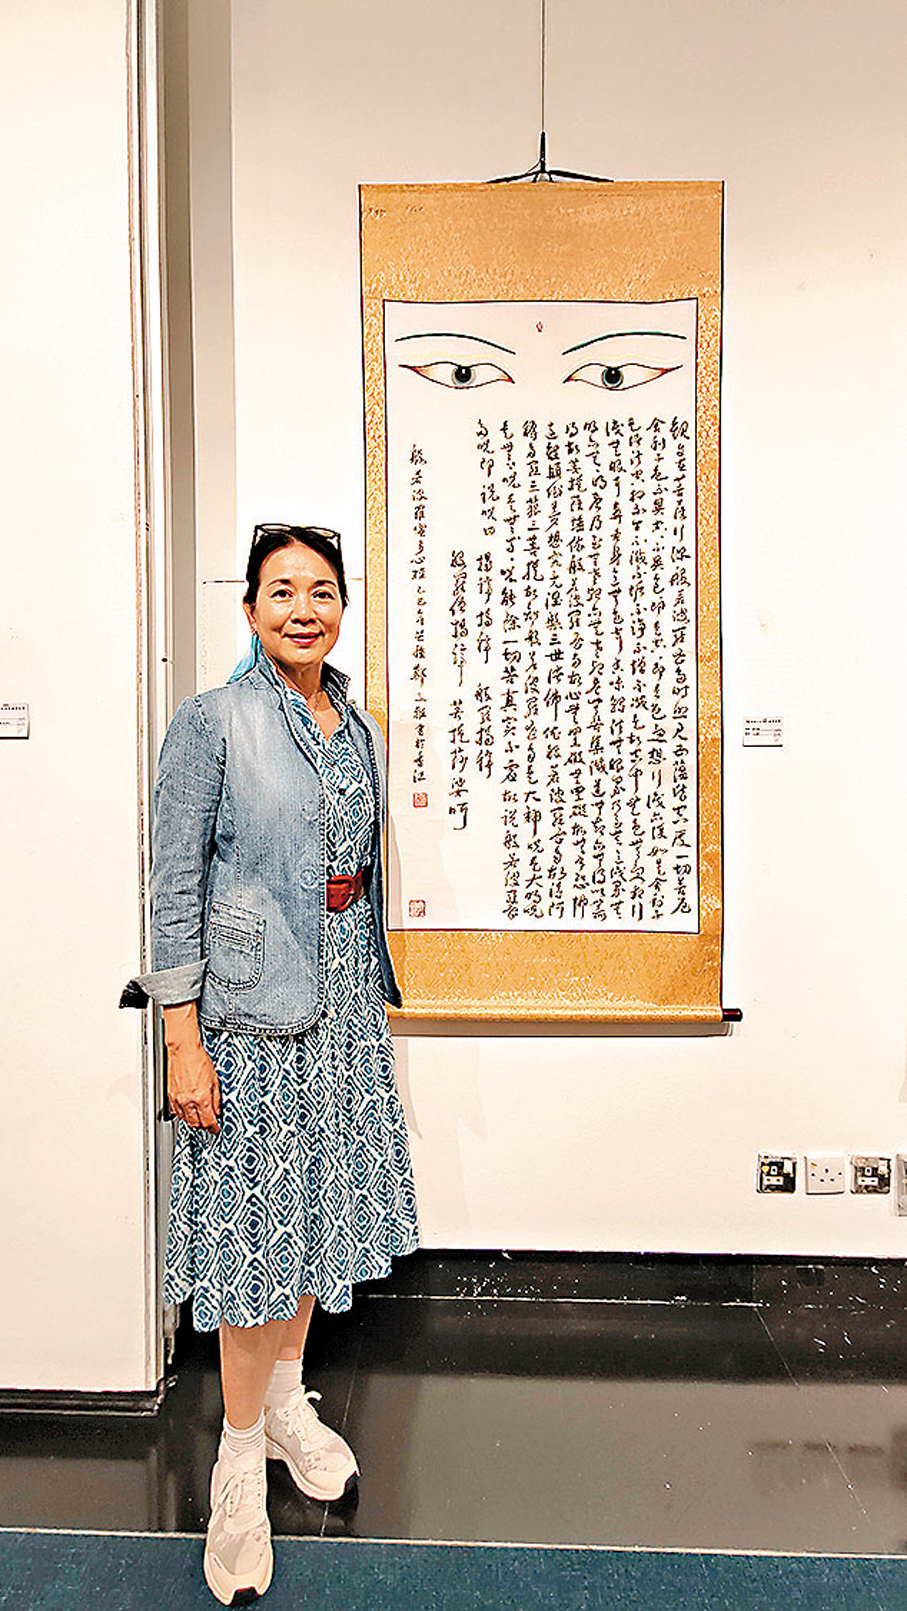 觀自在菩薩行深般若波羅蜜多時照見五蘊皆空度一切苦厄
舍利子色不異空空不異色色即是空空即是色受想行識亦復如是舍利子
是諸法空相不生不滅不垢不淨不增不減是故空中無色無受想行
識無眼耳鼻舌身意無色聲香味觸法無眼界乃至無意識界無
無明亦無無明盡乃至無老死亦無老死盡無苦集滅道無智亦無得以無所
得故菩提薩埵依般若波羅蜜多故心無罣礙無罣礙故無有恐怖
遠離顛倒夢想究竟涅槃三世諸佛依般若波羅蜜多故得阿
耨多羅三藐三菩提故知般若波羅蜜多是大神咒是大明咒
是無上咒是無等等咒能除一切苦真實不虛故說般若波羅蜜
多咒即說咒曰 揭諦揭諦 般羅揭諦
般羅僧揭諦 菩提薩婆訶
般若波羅蜜多心經 乙巳年芒種 鄭文雅書於香江